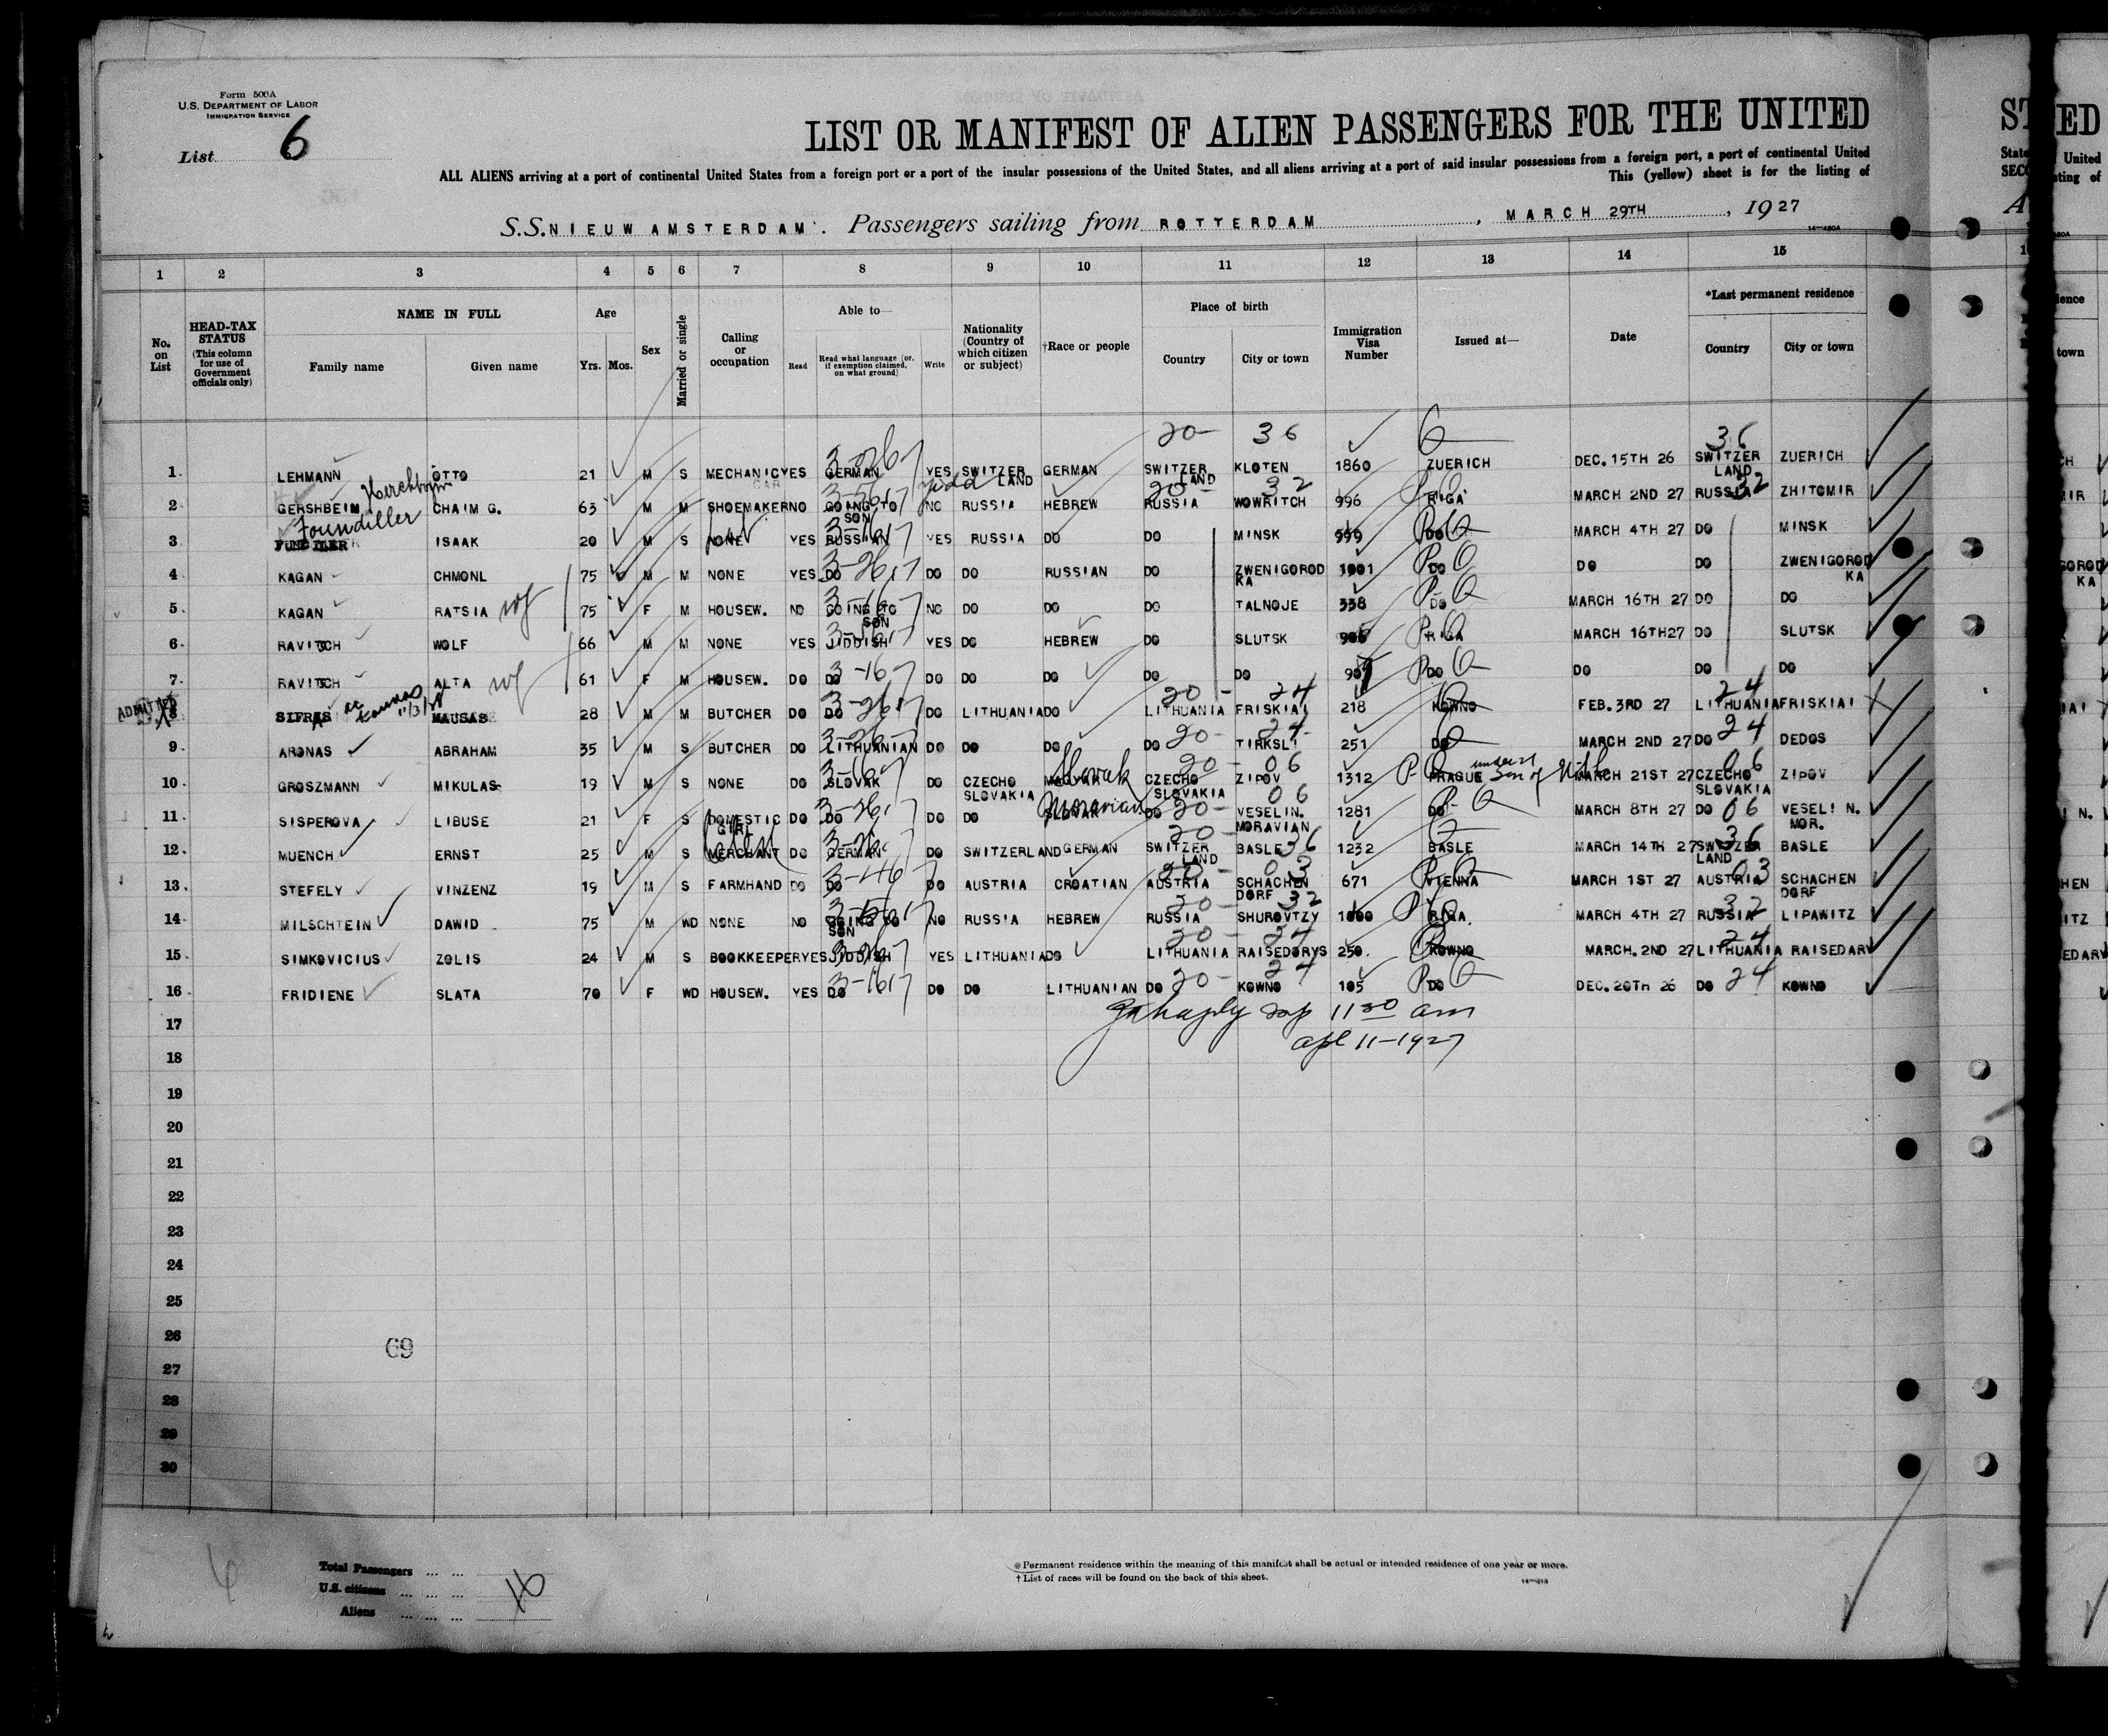 Form 500A
U.S. DEPARTMENT OF LABOR
IMMIGRATION SERVICE
List 6
LIST OR MANIFEST OF ALIEN PASSENGERS FOR THE UNITED
ALL ALIENS arriving at a port of continental United States from a foreign port or a port of the insular possessions of the United States, and all aliens arriving at a port of said insular possessions from a foreign port, a port of continental United
This (yellow) sheet is for the listing of
S.S. NIEUW AMSTERDAM. Passengers sailing from ROTTERDAM, MARCH 29TH, 1927
14—480A
1 2 3 4 5 6 7 8 9 10 11 12 13 14 15
No. on List
HEAD-TAX STATUS (This column for use of Government officials only)
NAME IN FULL
Family name Given name
Age
Yrs. Mos.
Sex
Married or single
Calling or occupation
Able to—
Read Read what language [or, if exemption claimed, on what ground] Write
Nationality (Country of which citizen or subject)
†Race or people
Place of birth
Country City or town
Immigration Visa Number
Issued at—
Date
*Last permanent residence
Country City or town
20- 36 36
1 LEHMANN OTTO 21 M S MECHANIC YES GERMAN YES SWITZERLAND GERMAN SWITZERLAND KLOTEN 1860 ZUERICH DEC. 15TH 26 SWITZERLAND ZUERICH
2 GERSHBEIM CHAIM G. 63 M M SHOEMAKER NO GOING TO SON NO RUSSIA HEBREW RUSSIA WOWRITCH 996 RIGA MARCH 2ND 27 RUSSIA ZHITOMIR
Foundiller
3 ISAAK 20 M S NONE YES RUSSIAN YES RUSSIA DO DO MINSK 999 DO MARCH 4TH 27 DO MINSK
4 KAGAN CHMONL 75 M M NONE YES DO DO DO RUSSIAN DO ZWENIGORODKA 1001 DO DO DO ZWENIGORODKA
5 KAGAN RATSIA wf 75 F M HOUSEW. NO GOING TO SON NO DO DO DO TALNOJE 338 DO MARCH 16TH 27 DO DO
6 RAVITCH WOLF 66 M M NONE YES JIDDISH YES DO HEBREW DO SLUTSK RIGA MARCH 16TH27 DO SLUTSK
7 RAVITCH ALTA wf 61 F M HOUSEW. DO DO DO DO DO DO DO DO DO DO DO
ADMITTED
8 SIFRAS MAUSAS 28 M M BUTCHER DO DO DO LITHUANIA DO LITHUANIA FRISKIAI 218 KOWNO FEB. 3RD 27 LITHUANIA FRISKIAI
9 ARONAS ABRAHAM 35 M S BUTCHER DO LITHUANIAN DO DO DO DO TIRKSLI 251 DO MARCH 2ND 27 DO DEDOS
10 GROSZMANN MIKULAS 19 M S NONE DO SLOVAK DO CZECHO SLOVAKIA Slovak CZECHO SLOVAKIA ZIPOV 1312 PRAGUE MARCH 21ST 27 CZECHO SLOVAKIA ZIPOV
11 SISPEROVA LIBUSE 21 F S DOMESTIC GIRL DO DO DO DO Moravian DO VESELIN. MORAVIAN 1281 DO MARCH 8TH 27 DO VESELI N. MOR.
12 MUENCH ERNST 25 M S MERCHANT DO GERMAN DO SWITZERLAND GERMAN SWITZERLAND BASLE 1232 BASLE MARCH 14TH 27 SWITZERLAND BASLE
13 STEFELY VINZENZ 19 M S FARMHAND DO DO DO AUSTRIA CROATIAN AUSTRIA SCHACHENDORF 671 VIENNA MARCH 1ST 27 AUSTRIA SCHACHENDORF
14 MILSCHTEIN DAWID 75 M WD NONE NO GOING TO SON NO RUSSIA HEBREW RUSSIA SHUROVTZY 1000 RIGA. MARCH 4TH 27 RUSSIA LIPAWITZ
15 SIMKOVICIUS ZOLIS 24 M S BOOKKEEPER YES JIDDISH YES LITHUANIA DO LITHUANIA RAISEDORYS 250. KOWNO MARCH. 2ND 27 LITHUANIA RAISEDARY
16 FRIDIENE SLATA 70 F WD HOUSEW. YES DO DO DO LITHUANIAN DO KOWNO 105 DO DEC. 20TH 26 DO KOWNO
17 11 30 am
18 apl 11-1927
19
20
21
22
23
24
25
26
69
27
28
29
30
Total Passengers
U.S. citizens
Aliens
16
*Permanent residence within the meaning of this manifest shall be actual or intended residence of one year or more.
†List of races will be found on the back of this sheet.